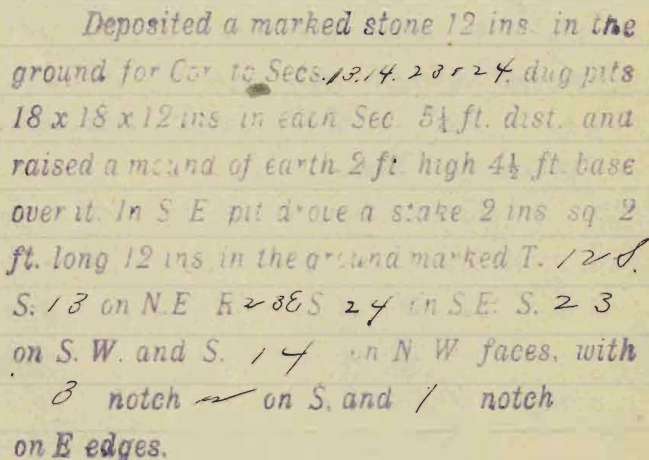 Deposited a marked stone 12 ins. in the
ground for Cor. to Secs. 13. 14. 23 & 24, dug pits
18 x 18 x 12 ins. in each Sec. 5½ ft. dist. and
raised a mound of earth 2 ft. high 4½ ft. base
over it. In S E pit drove a stake 2 ins. sq. 2
ft. long 12 ins. in the ground marked T. 12 S.
S. 13 on N.E. R 23 E S 24 on S.E. S. 23
on S. W. and S. 14 on N. W. faces, with
3 notch on S. and 1 notch
on E edges.